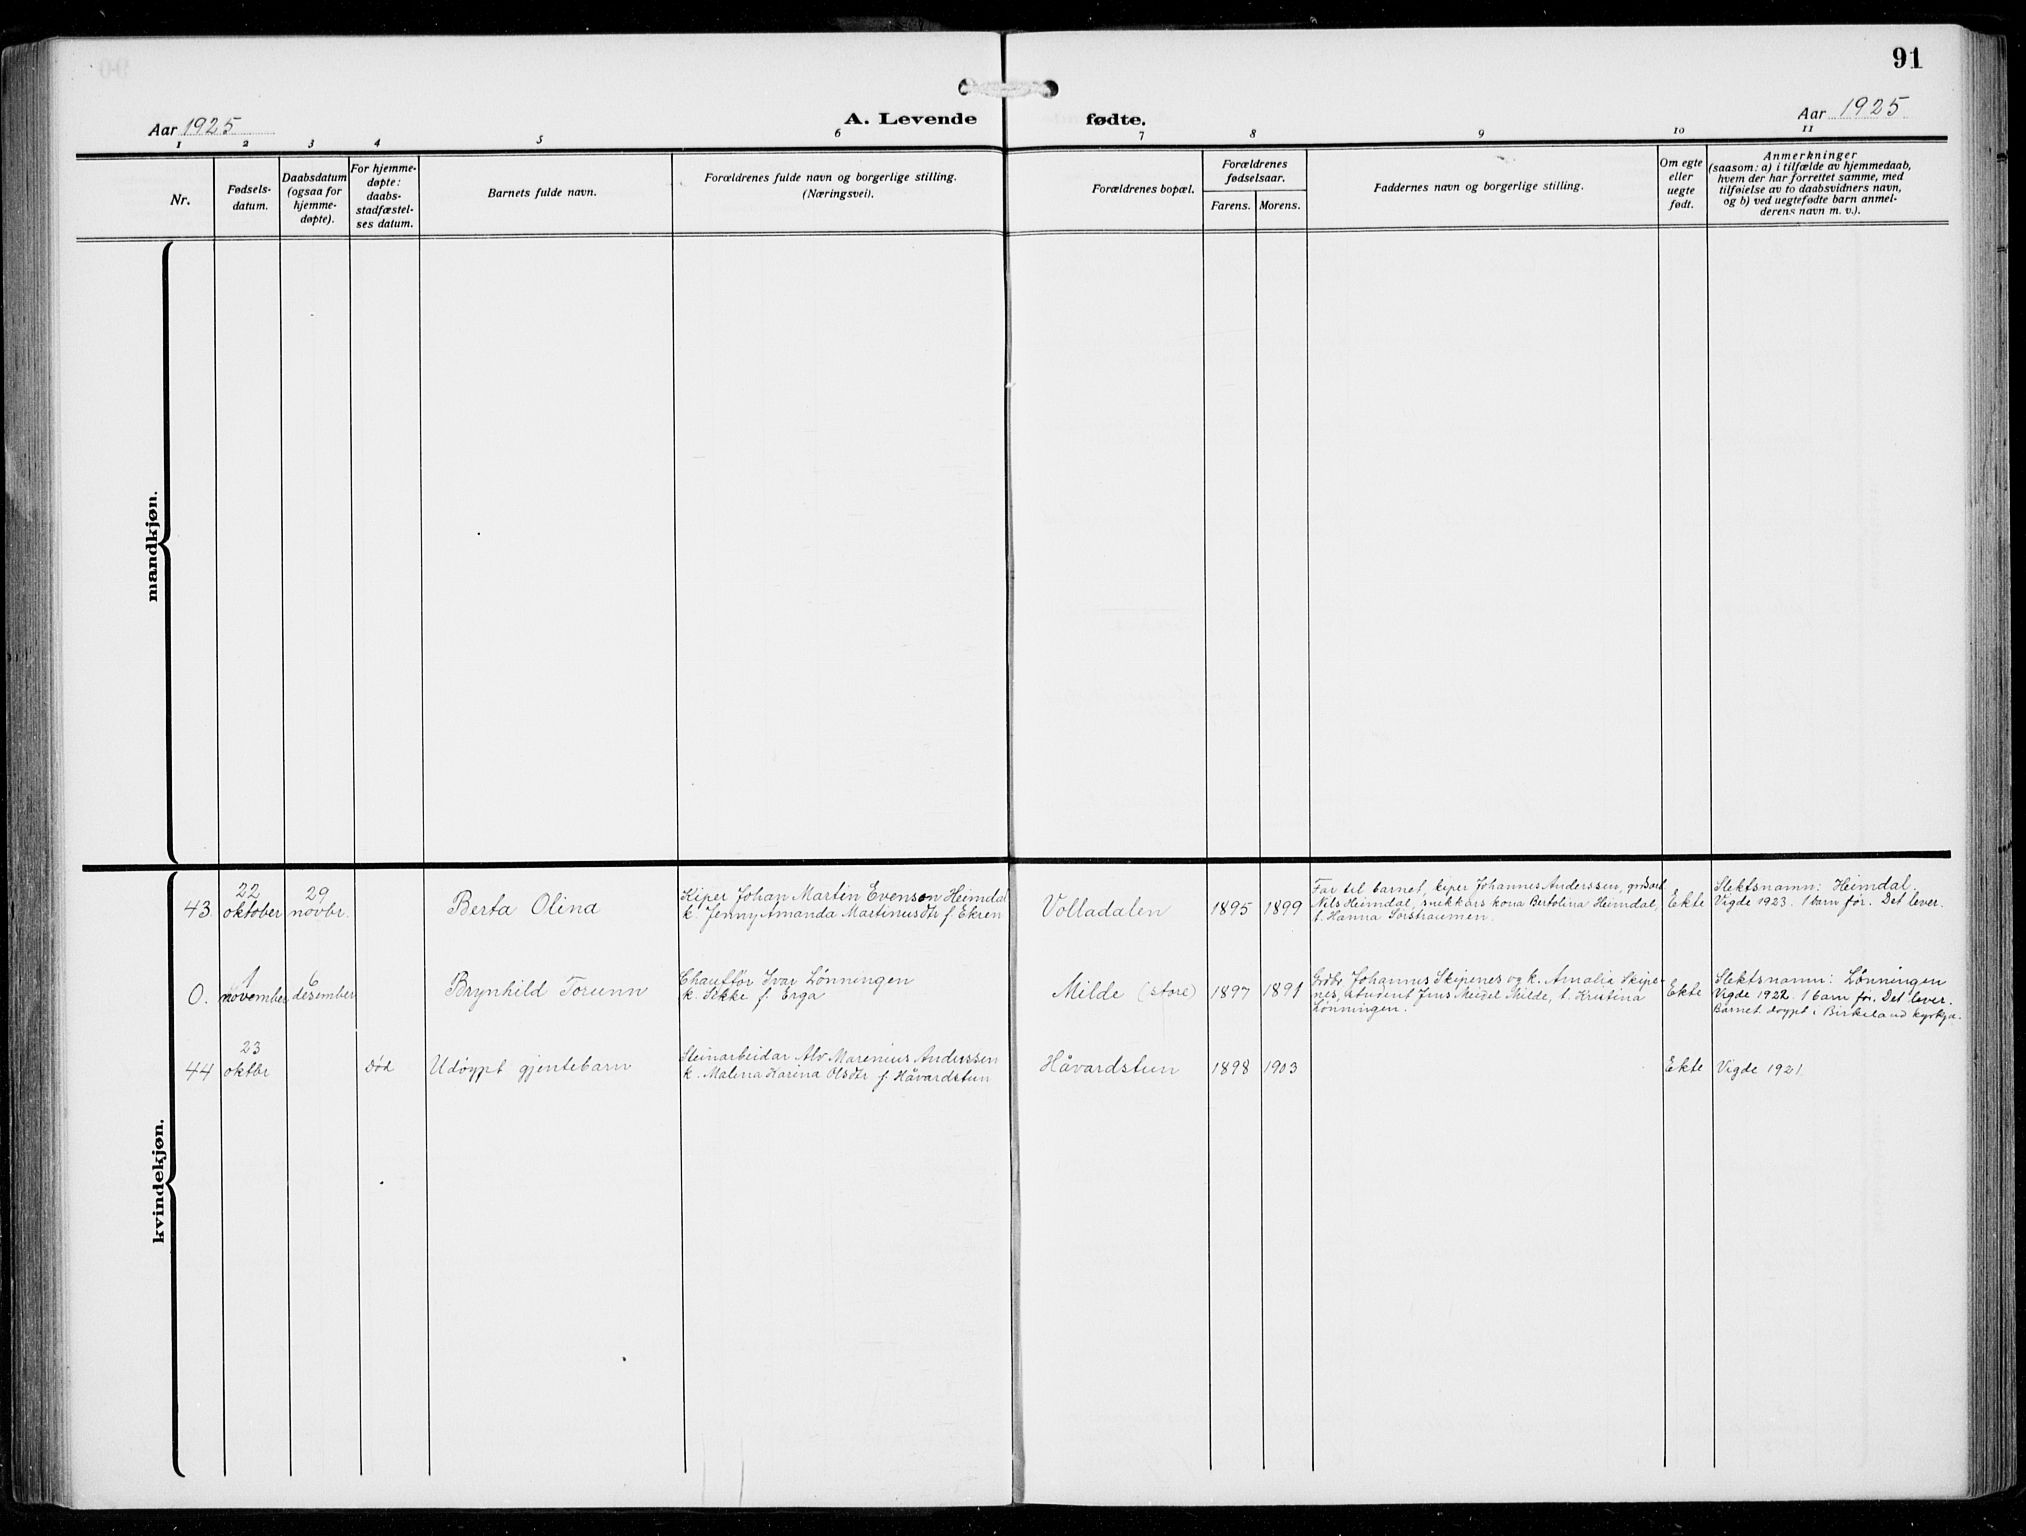 91
Aar 1925
A. Levende fødte.
Aar 1925
1 2 3 4 5 6 7 8 9 10 11
Nr.
Fødsels-
datum.
Daabsdatum
(ogsaa for
hjemme-
døpte).
For hjemme-
døpte:
daabs-
stadfæstel-
ses datum.
Barnets fulde navn.
Forældrenes fulde navn og borgerlige stilling.
(Næringsvei).
Forældrenes bopæl.
Forældrenes
fødselsaar.
Farens. Morens.
Faddernes navn og borgerlige stilling.
Om egte
eller
uegte
født.
Anmerkninger
(saasom: a) i tilfælde av hjemmedaab,
hvem der har forrettet samme, med
tilføielse av to daabsvidners navn,
og b) ved uegtefødte barn anmel-
derens navn m. v.).
mandkjøn.
kvindekjøn.
43.
22
oktober
29
novbr.
Berta Olina
Kiper Johan Martin Evenson Heimdal
k. Jenny Amanda Martinusdtr f. Ekren
Volladalen
1895
1899
Far til barnet, kiper Johannes Anderssen,
Nils Heimdal, snikkars kona Bertolina Heimdal,
t. Hanna Sørstraumen.
Ekte
Slektsnamn: Heimdal.
Vigde 1923. 1 barn før. Det lever.
0.
1
november
6
desember
Brynhild Torunn
Chauffør Ivar Lønningen
k. Sikke f. Erga
Milde (store)
1897
1891
Grdbr Johannes Skipenes og k. Amalie Skipe-
nes, student Jens Meidel Milde, t. Kristina
Lønningen.
Ekte
Slektsnamn: Lønningen
Vigde 1922. 1 barn før. Det lever.
Barnet døypt i Birkeland kyrkja.
44
23
oktbr
Død
Udøypt gjentebarn
Steinarbeidar Alv Marenius Anderssen
k. Malena Karina Olsdtr f. Håvardstun
Håvardstun
1898
1903
Ekte
Vigde 1921